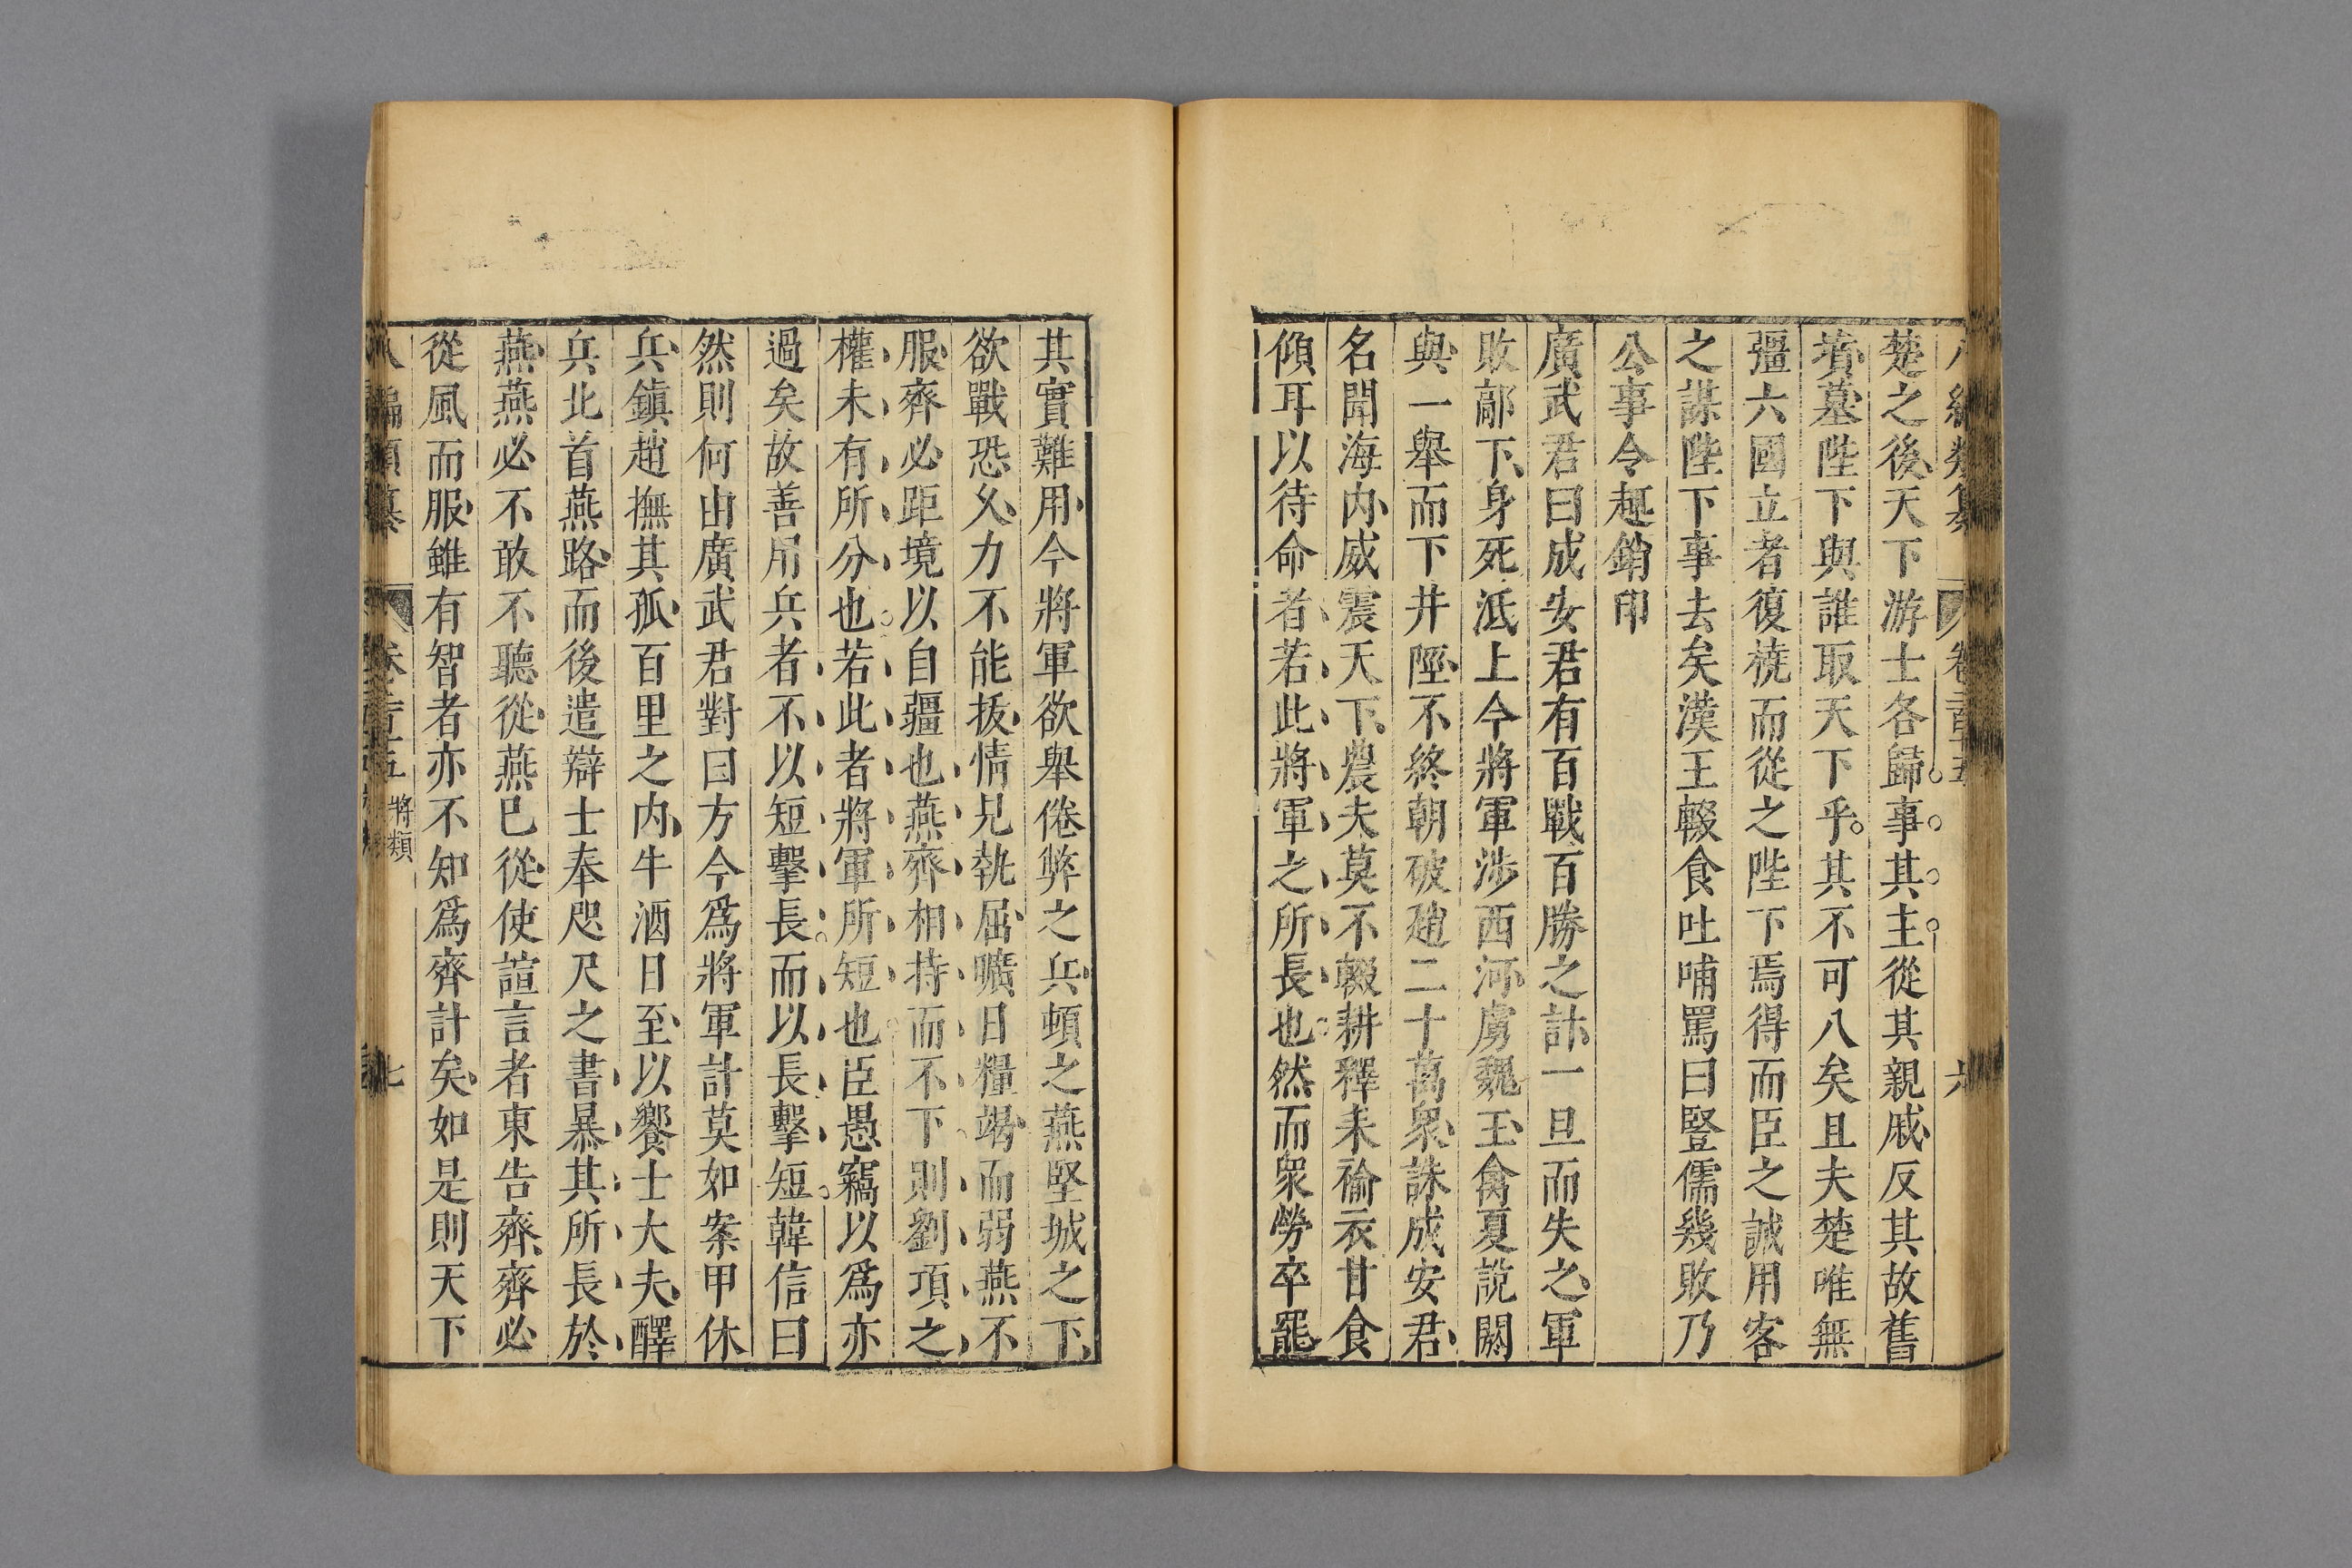 楚之後天下游士各歸事其主從其親戚反其故舊
墳墓陛下與誰取天下乎其不可八矣且夫楚唯無
彊六國立者復橈而從之陛下焉得而臣之誠用客
之謀陛下事去矣漢王輟食吐哺罵曰豎儒幾敗乃
公事令趣銷印
廣武君曰成安君有百戰百勝之計一旦而失之軍
敗鄗下身死泜上今將軍涉西河虜魏王禽夏說閼
與一舉而下井陘不終朝破趙二十萬衆誅成安君
名聞海内威震天下農夫莫不輟耕釋耒褕衣甘食
傾耳以待命者若此將軍之所長也然而衆勞卒罷
其實難用今將軍欲舉倦弊之兵頓之燕堅城之下
欲戰恐久力不能拔情見埶屈曠日糧竭而弱燕不
服齊必距境以自彊也燕齊相持而不下則劉項之
權未有所分也若此者將軍所短也臣愚竊以爲亦
過矣故善用兵者不以短擊長而以長擊短韓信曰
然則何由廣武君對曰方今爲將軍計莫如案甲休
兵鎮趙撫其孤百里之内牛酒日至以饗士大夫醳
兵北首燕路而後遣辯士奉咫尺之書暴其所長於
燕燕必不敢不聽從燕已從使諠言者東告齊齊必
從風而服雖有智者亦不知爲齊計矣如是則天下
八編類纂 卷 五 將類 七